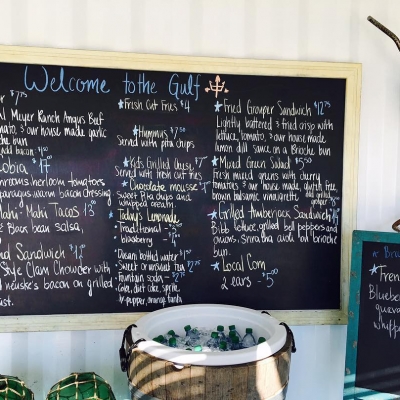 Welcome to the Gulf
$7.75
Meyer Ranch Angus Beef
tomato, & our house made garlic
bun
add bacon
Cobia $17
heirloom tomatoes
asparagus warm bacon dressing
Mahi-Mahi Tacos 13
black bean salsa,
Sandwich
Style Clam Chowder with
bacon on grilled
Fresh Cut Fries $4
Hummus $7.50
Served with pita chips
Kids Grilled Cheese $7
Served with fresh cut fries
Chocolate mousse
Sweet pita chips and
whipped cream
Today's Lemonade
Traditional -
blueberry -
Dasani bottled water $1
Sweet or unsweet tea
Fountain soda - $2.75
Coke, diet coke, sprite,
dr. pepper, orange fanta
Fried Grouper Sandwich $12.75
Lightly battered & fried crisp with
lettuce, tomato, & our house made
lemon dill sauce on a Brioche bun
Mixed Green Salad $5.50
Fresh mixed greens with cherry
tomatoes & our house made, gluten free
brown balsamic vinaigrette
Grilled Amberjack Sandwich
Bibb lettuce, grilled bell peppers and
onions, Sriracha aioli on brioche
bun.
Local Corn
2 ears - 5.00
Fren
Blueber
guava
whipp